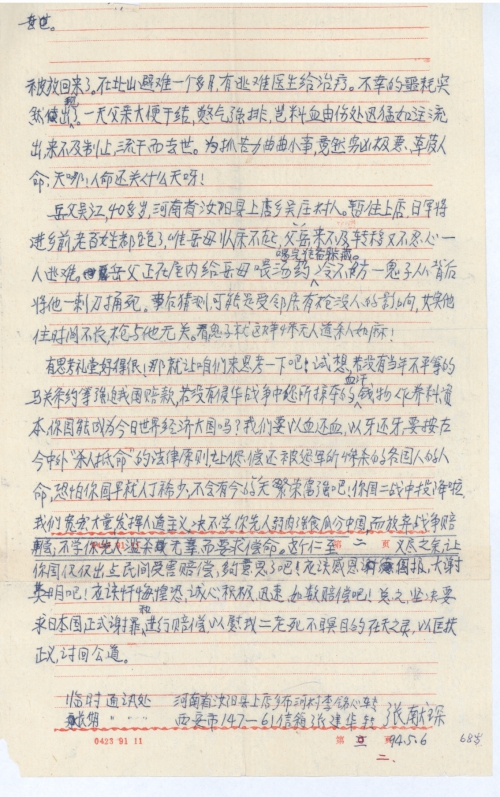 去世。
被放回来了。在北山避难一个多月,有逃难医生给治疗。不幸的噩耗突
然传出了,一天父亲大便干结,憋气强排,岂料血由伤处迅猛如注流
出来不及制止,流干而去世。为抓苦力曲曲小事,竟然穷凶极恶,草菅人
命,天哪!人命还关什么天呀!
岳父吴江,40多岁,河南省汝阳县上店乡吴庄村人。暂住上店,日军将
进乡前,老百姓都跑了,唯岳母因病不起,父岳来不及转移又不忍心一
人逃难。岳父正在屋内给岳母喂汤药,喝完准备躲藏。冷不防一鬼子从背后
将他一刺刀捅死。事后猜测可能是受邻居有枪没人的影响,其实他
住时间不长,枪与他无关。看鬼子兵这种惨无人道杀人如麻!
有思考礼堂好得很!那就让咱们来思考一下吧!试想,若没有当年不平等的
马关条约等强迫我国赔款,若没有侵华战争中您所掠夺的血汗钱物作养料滋
本,你国能成为今日世界经济大国吗?我们要以血还血,以牙还牙,要按古
今中外“杀人抵命”的法律原则,让您偿还被您军所惨杀的各国人的人
命,恐怕你国早就人丁稀少,不会有今的天繁荣富强吧!你国二战中投降啦
我们宽宏大量发挥人道主义,决不学你先人弱肉强食瓜分中国,而放弃战争赔
款,不学你先人滥杀无辜而要求偿命。这仁至义尽之举,让
你国仅仅出点民间受害赔偿,够意思了吧!应该感恩图报,大谢
吧!应该忏悔惶恐,诚心积极、迅速、如数赔偿吧!总之,坚决要
求日本国,正式谢罪和进行赔偿,以慰我二老死不瞑目的在天之灵,以匡扶
正义讨回公道。
临时通讯处 河南省汝阳县上店乡布河村李銘心转
长期 〃 〃 〃 西安市147—61信箱张建华转 张献琛
0423 91 11 第 页 94.5.6 685
二.